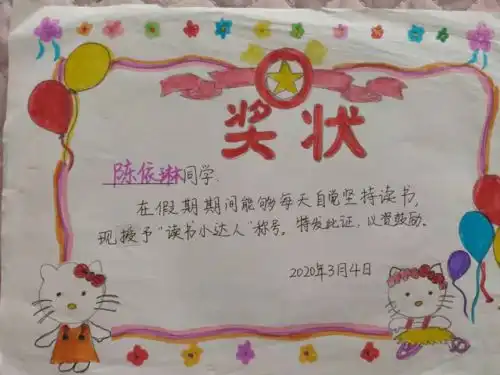 奖状
陈依琳同学:
在假期期间能够每天自觉坚持读书,
现授予“读书小达人”称号。特发此证,以资鼓励。
2020年3月4日